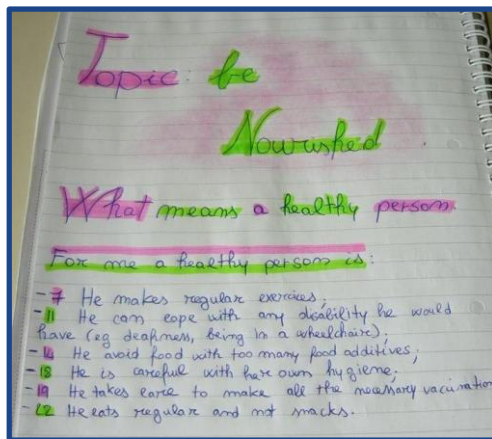 Topic: be
Nourished
What means a healthy person
For me a healthy person is:
- 7 He makes regular exercices;
- 11 He can cope with any disability he would
have (eg deafness, being in a wheelchair);
- 14 He avoid food with too many food additives;
- 18 He is careful with her own hygiene;
- 19 He takes care to make all the necessary vaccination
- 22 He eats regular and not snacks.